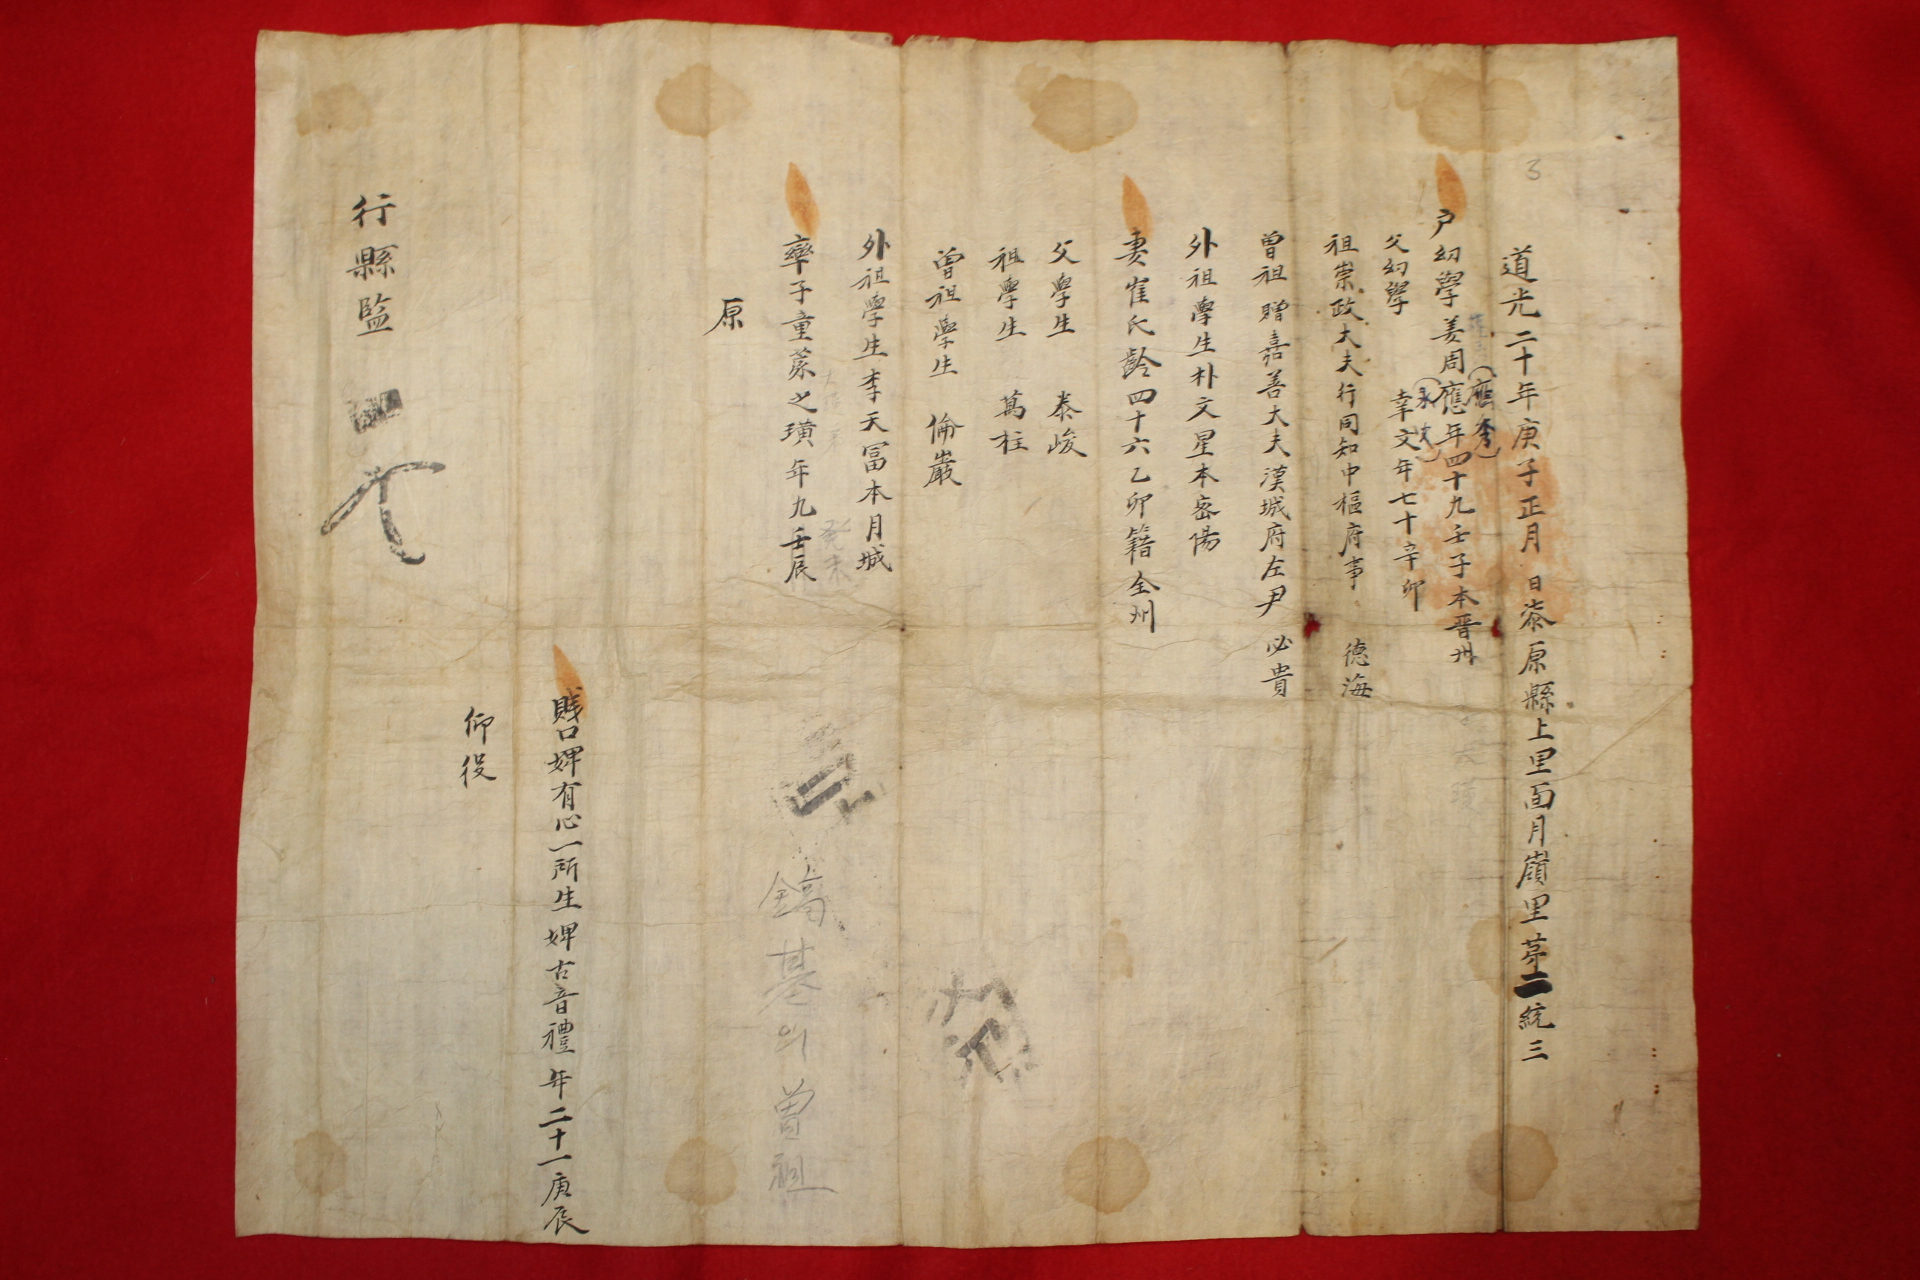 3
道光二十年庚子正月 日漆原縣上里面月嶺里苐二統三
(應秀)
戶幼學姜周應年四十九壬子本晋州
父幼學 幸文年七十辛卯
祖崇政大夫行同知中樞府事 德海
曾祖贈嘉善大夫漢城府左尹 必貴
外祖學生朴文星本密陽
妻崔氏齡四十六乙卯籍全州
父學生 泰峻
祖學生 萬柱
曾祖學生 倫巖
外祖學生李天冨本月城
癸未
率子童蒙之璜年九壬辰
鎬基의 曾祖
原
賎口婢有心一所生婢古音禮年二十一庚辰
仰役
行縣監